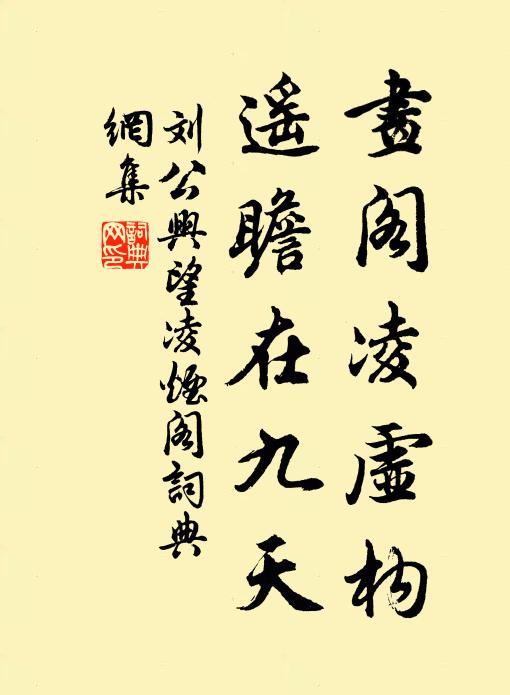 畫閣凌虛构
遥瞻在九天
刘公興望凌煙阁詞典
網集
詞典网印